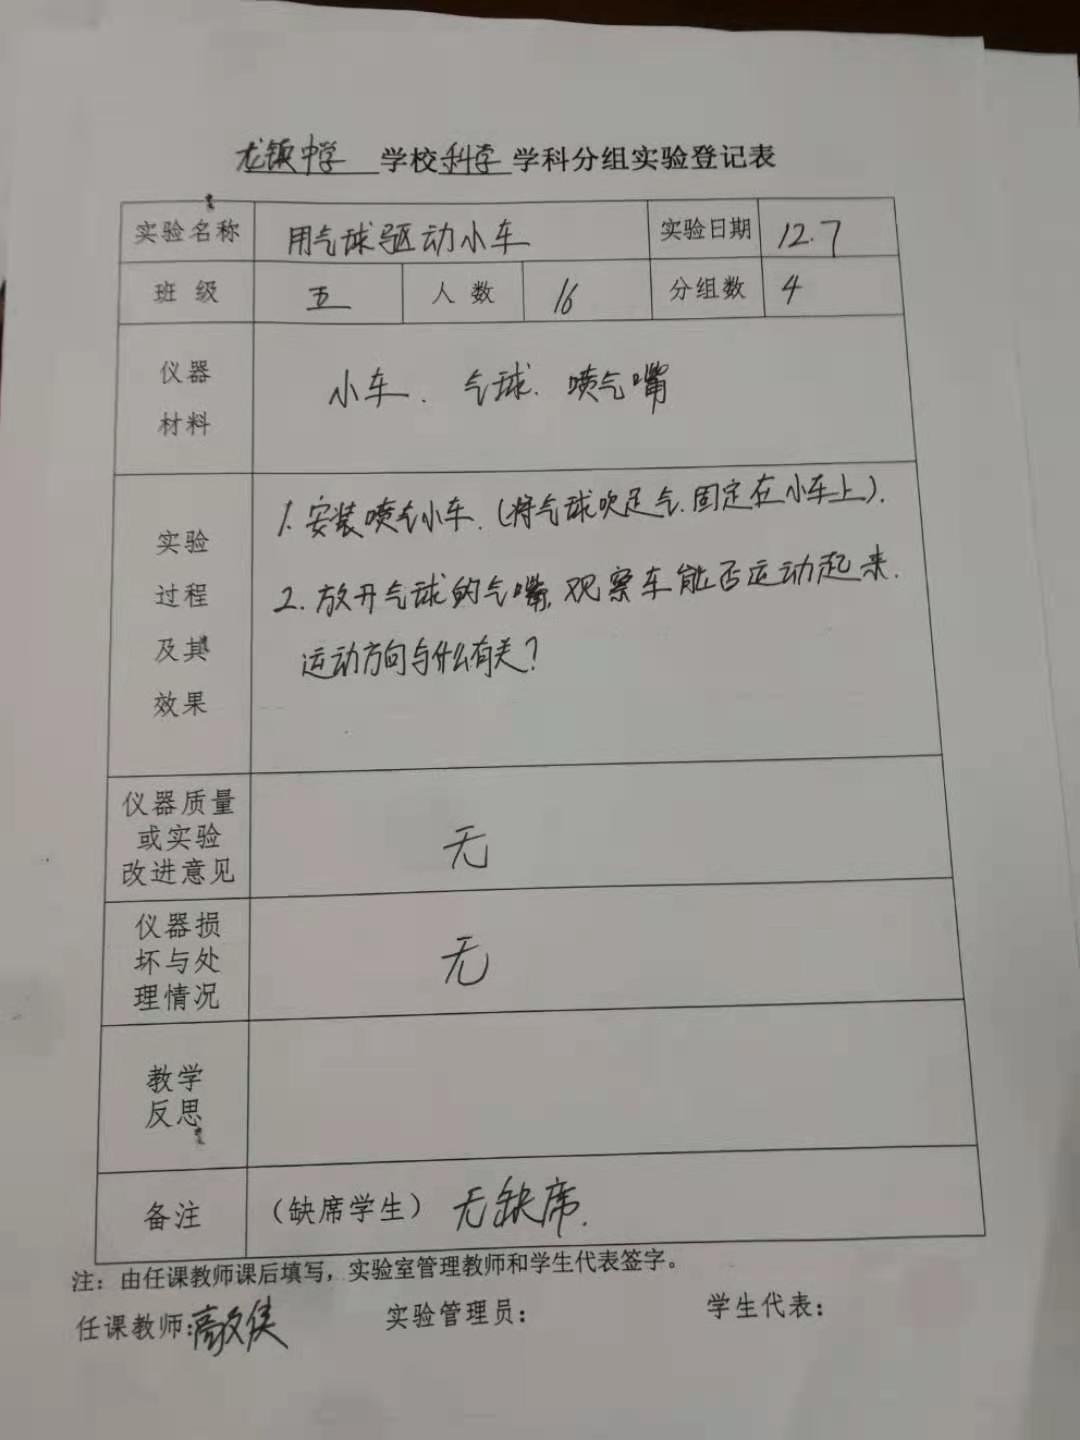 龙镇中学 学校科学学科分组实验登记表
实验名称 用气球驱动小车 实验日期 12.7
班级 五 人数 16 分组数 4
仪器
材料
小车. 气球. 喷气嘴
实验
过程
及其
效果
1. 安装喷气小车.(将气球吹足气.固定在小车上).
2. 放开气球的气嘴,观察车能否运动起来.
运动方向与什么有关?
仪器质量
或实验
改进意见
无
仪器损
坏与处
理情况
无
教学
反思
备注 (缺席学生) 无缺席.
注: 由任课教师课后填写, 实验室管理教师和学生代表签字。
任课教师: 实验管理员: 学生代表: